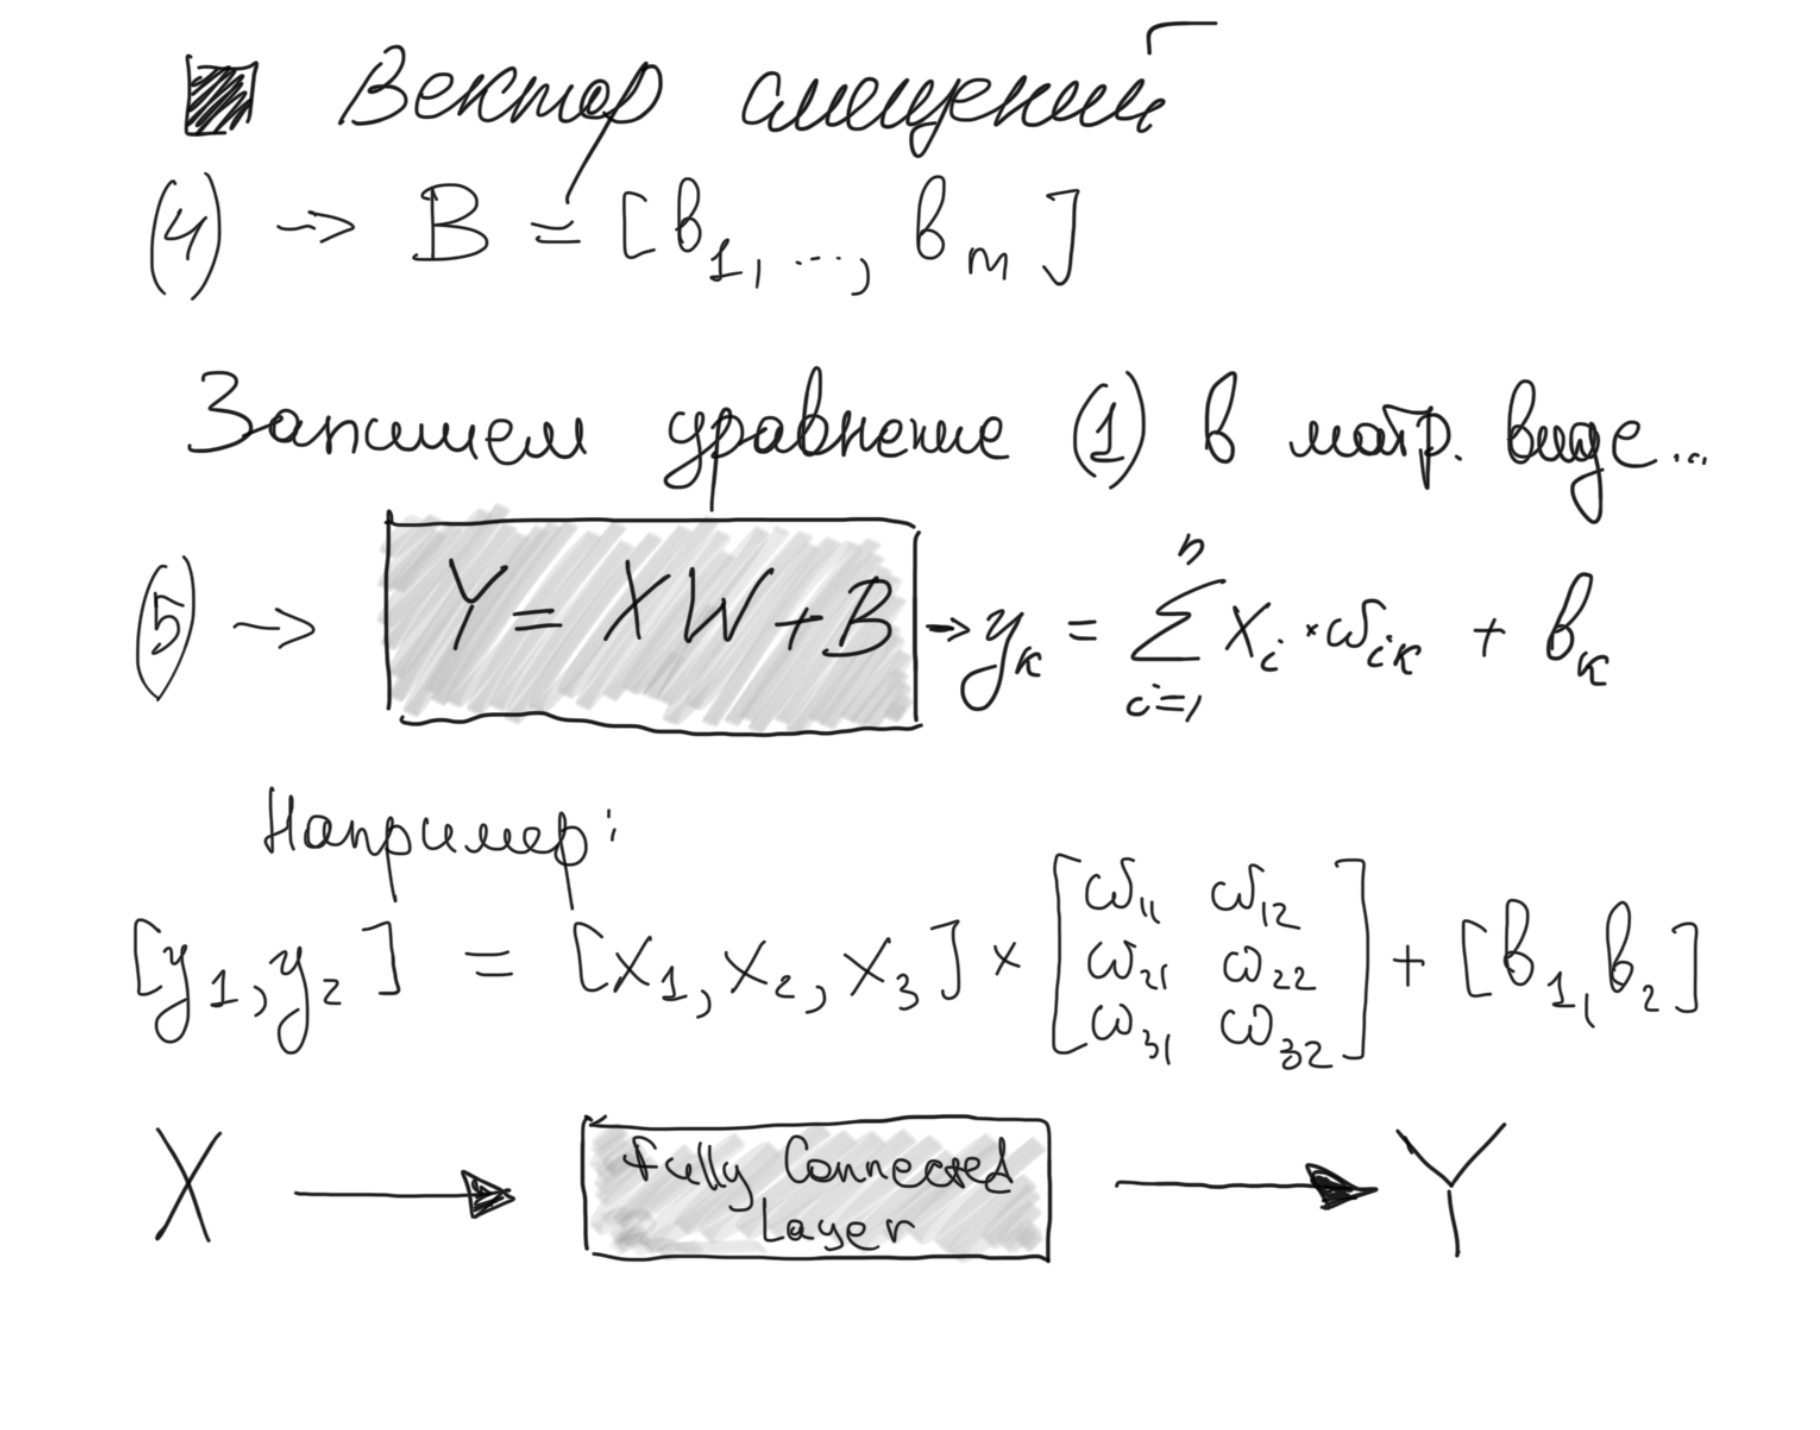 Вектор смещений
(4) → B = [b₁, ..., bₘ]
Запишем уравнение (1) в матр. виде...
(5) → Y = XW + B → yₖ = ∑ᵢ₌₁ⁿ xᵢ · ωᵢₖ + bₖ
Например:
[y₁, y₂] = [x₁, x₂, x₃] × [ω₁₁ ω₁₂
ω₂₁ ω₂₂
ω₃₁ ω₃₂] + [b₁, b₂]
X → Fully Connected → Y
Layer